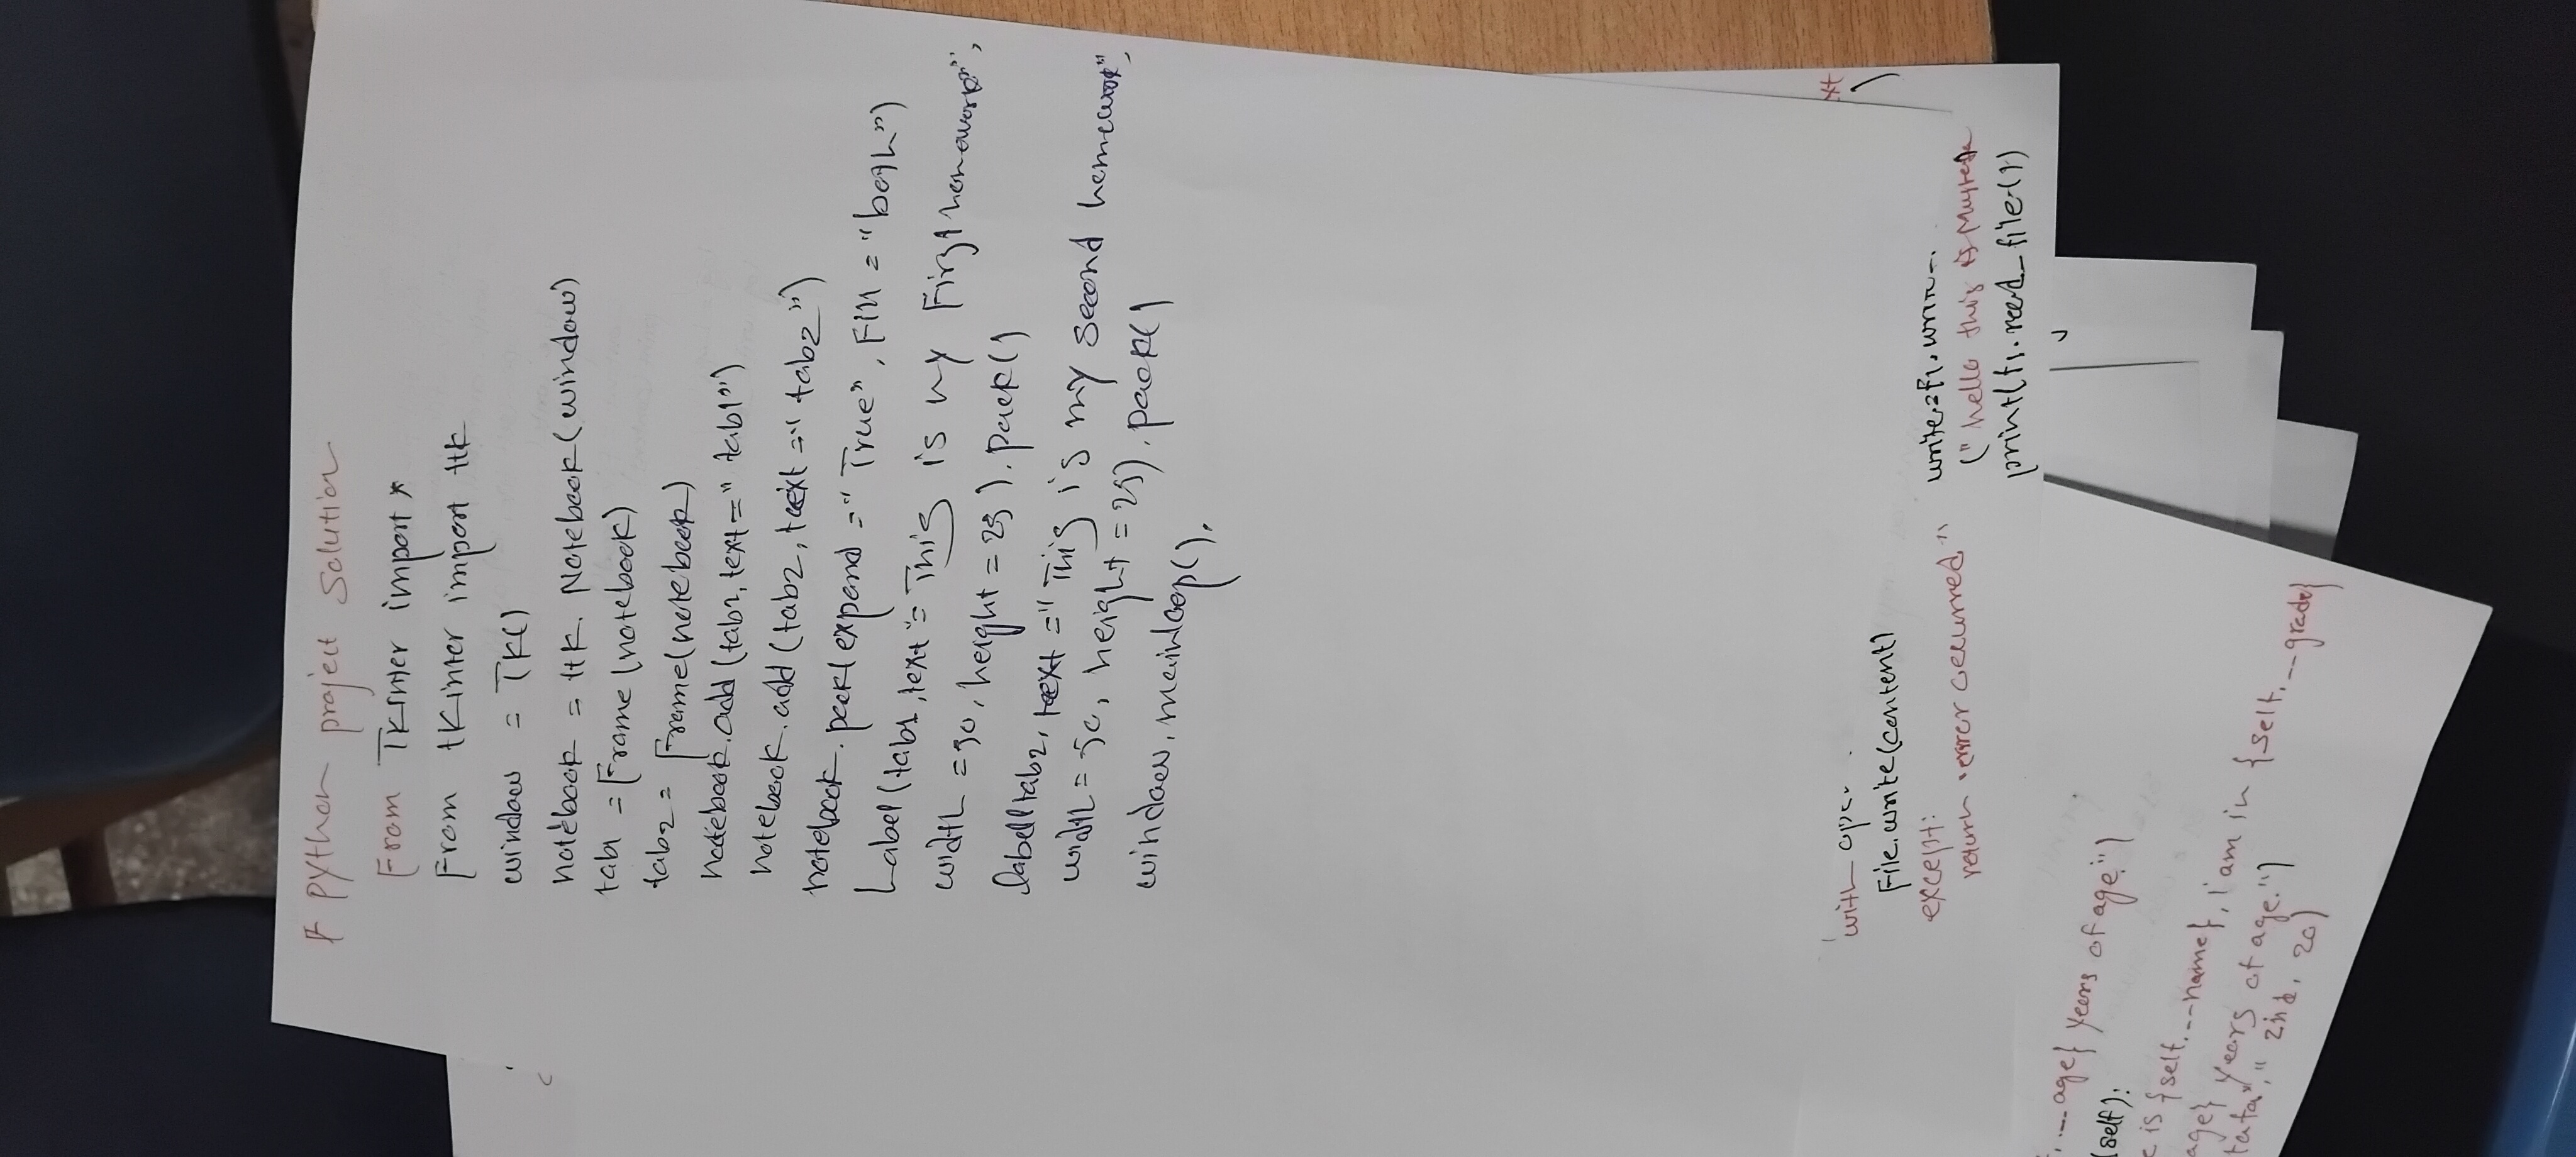 # python project Solution
From Tkinter import *
From tkinter import ttk
window = Tk()
notebook = ttk. Notebook(window)
tab1 = Frame (notebook)
tab2 = Frame(notebook)
notebook.add (tab1, text=" tab1")
notebook.add (tab2, text =" tab2")
notebook. pack( expand =" True", Fill = "both")
Label (tab1, text "= This is my First homework",
width = 50, height = 25 ). pack()
label(tab2, text =" This is my second homework",
width = 50, height = 25). pack()
window. mainloop().
xt
)
with
File.write(content)
except:
return "error occurred"
write=f1.
(" hello this is
print(f1.read_file())
.__age} years of age.")
(self):
is {self.__name}, i am in {self.__grade}
age} years of age.")
tata", " 2nd, 20)